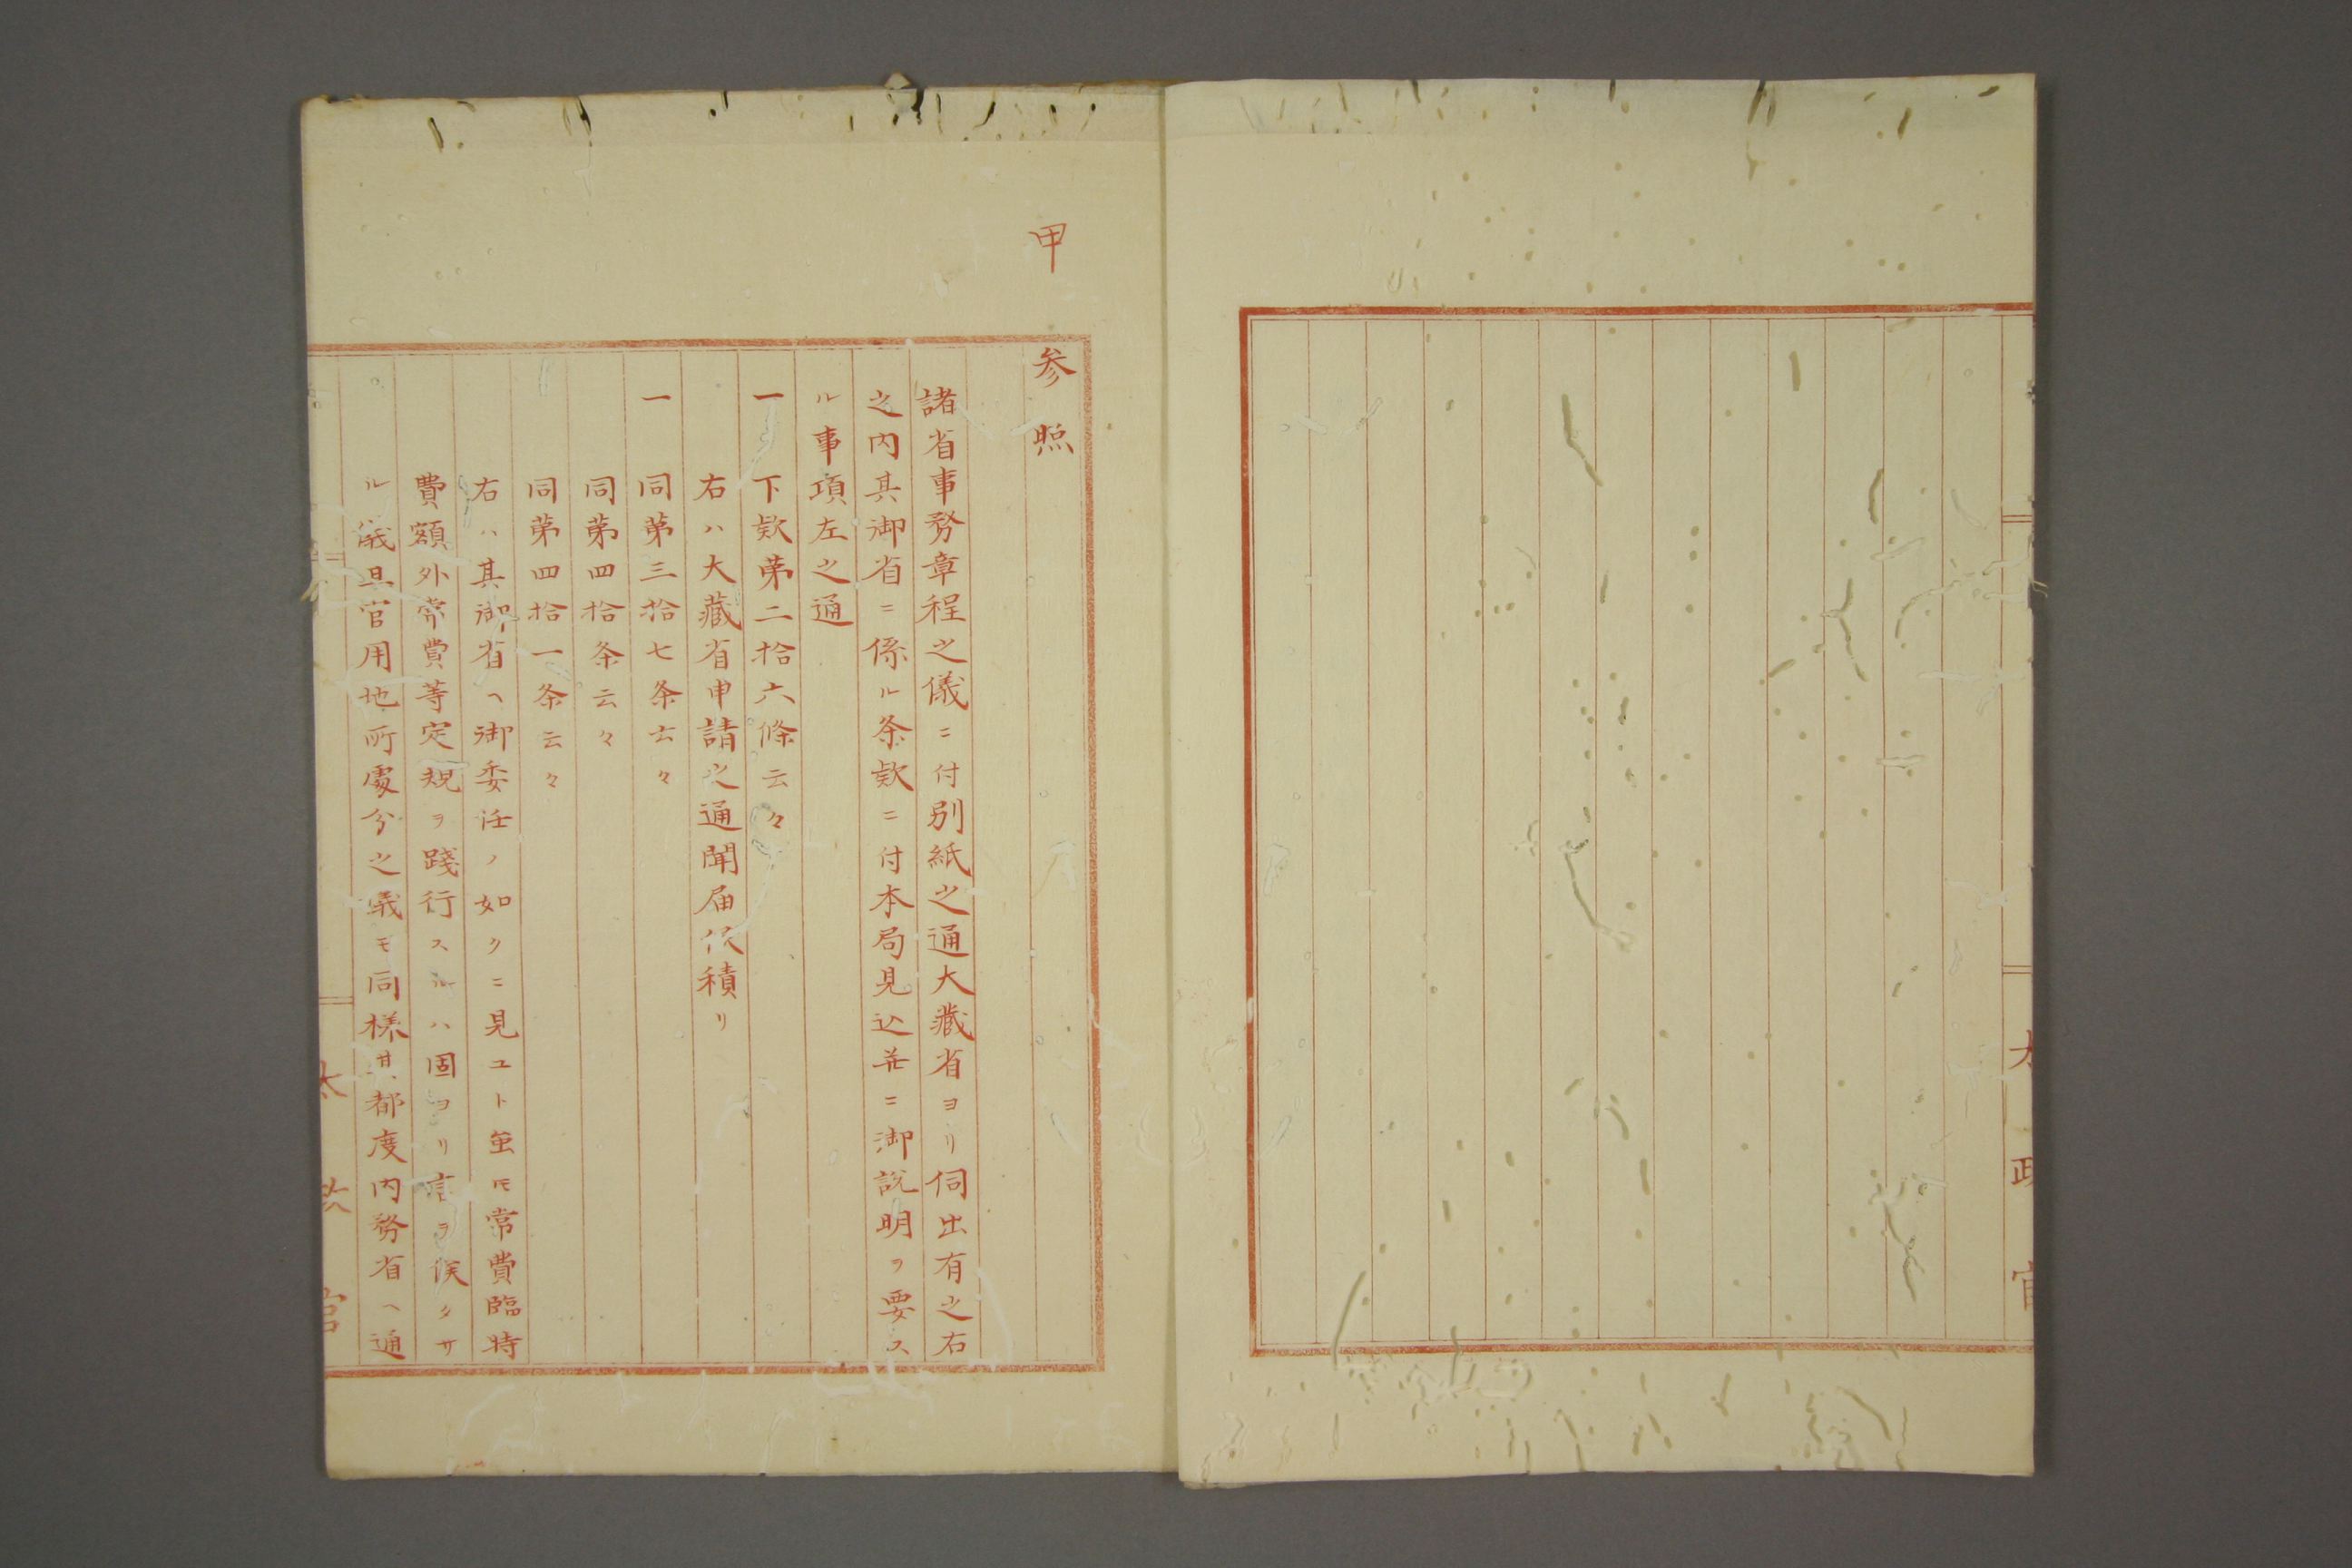 太政官
甲
参照
諸省事務章程之儀ニ付別紙之通大藏省ヨリ伺出有之右
之内其御省ニ係ル条款ニ付本局見込並ニ御説明ヲ要ス
ル事項左之通
一　下款第二拾六條云々
右ハ大藏省申請之通聞届候積リ
一　同第三拾七条云々
同第四拾条云々
同第四拾一条云々
右ハ其御省ヘ御委任ノ如クニ見ユト雖モ常費臨時
費額外常費等定規ヲ踐行スルハ固ヨリ言ヲ俟タサ
ル儀且官用地所處分之儀モ同様其都度内務省ヘ通
太政官